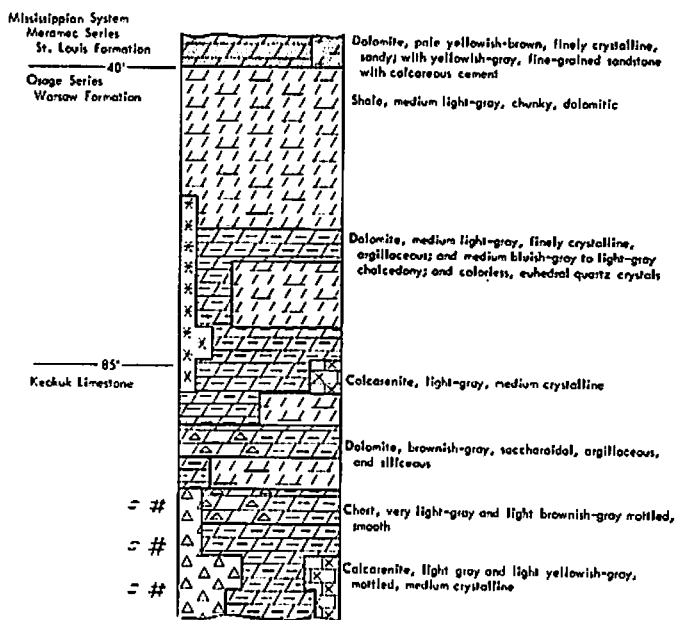 Mississippian System
Meramec Series
St. Louis Formation
40'
Osage Series
Warsaw Formation
85'
Keokuk Limestone
Dolomite, pale yellowish-brown, finely crystalline,
sandy; with yellowish-gray, fine-grained sandstone
with calcareous cement
Shale, medium light-gray, chunky, dolomitic
Dolomite, medium light-gray, finely crystalline,
argillaceous; and medium bluish-gray to light-gray
chalcedony; and colorless, euhedral quartz crystals
Calcarenite, light-gray, medium crystalline
Dolomite, brownish-gray, saccharoidal, argillaceous,
and siliceous
Chert, very light-gray and light brownish-gray mottled,
smooth
Calcarenite, light gray and light yellowish-gray,
mottled, medium crystalline
= #
= #
= #